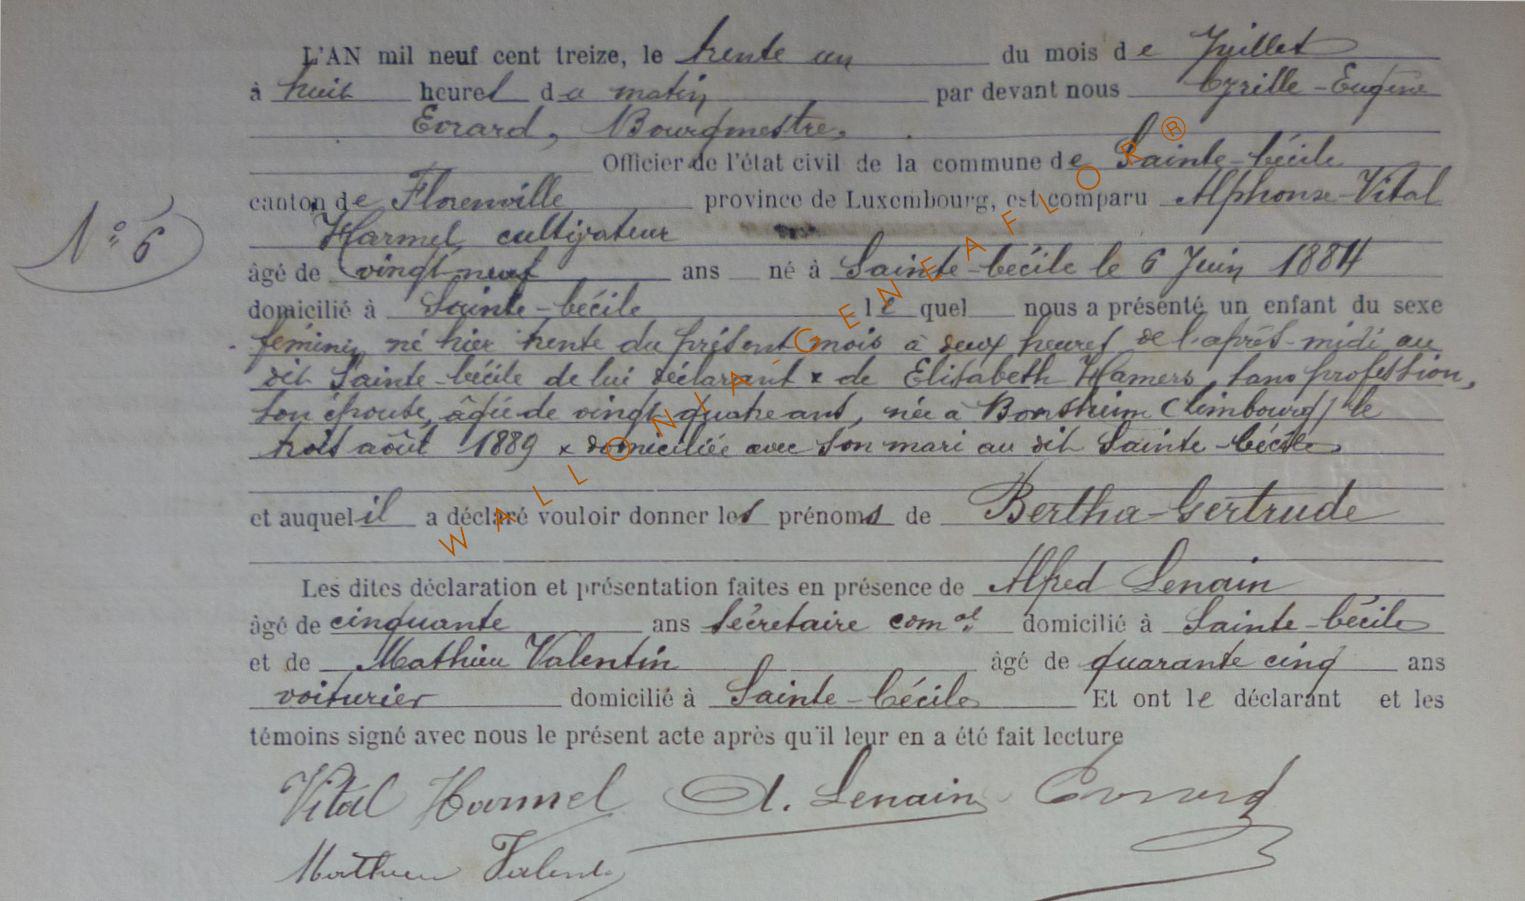 L'AN mil neuf cent treize, le trente un du mois de Juillet
à huit heures du matin par devant nous Cyrille-Eugène
Evrard, Bourgmestre,
Officier de l'état civil de la commune de Sainte-Cécile
canton de Florenville province de Luxembourg, est comparu Alphonse-Vital
Harmel, cultivateur
N° 6
âgé de vingt neuf ans né à Sainte-Cécile le 6 Juin 1884
domicilié à Sainte-Cécile lequel nous a présenté un enfant du sexe
féminin, né hier trente du présent mois à deux heures de l'après-midi au
dit Sainte-Cécile de lui déclarant & de Elisabeth Hamers, sans profession,
son épouse, âgée de vingt quatre ans, née à (Limbourg) le
trois août 1889 & domiciliée avec son mari au dit Sainte-Cécile
et auquel il a déclaré vouloir donner les prénoms de Bertha-Gertrude
Les dites déclaration et présentation faites en présence de Alfred Lenain
âgé de cinquante ans secrétaire comal domicilié à Sainte-Cécile
et de Mathieu Valentin âgé de quarante cinq ans
voiturier domicilié à Sainte-Cécile Et ont le déclarant et les
témoins signé avec nous le présent acte après qu'il leur en a été fait lecture
Vital Harmel A. Lenain Evrard
Mathieu Valentin
WALLONIA-GENEAFLOR®